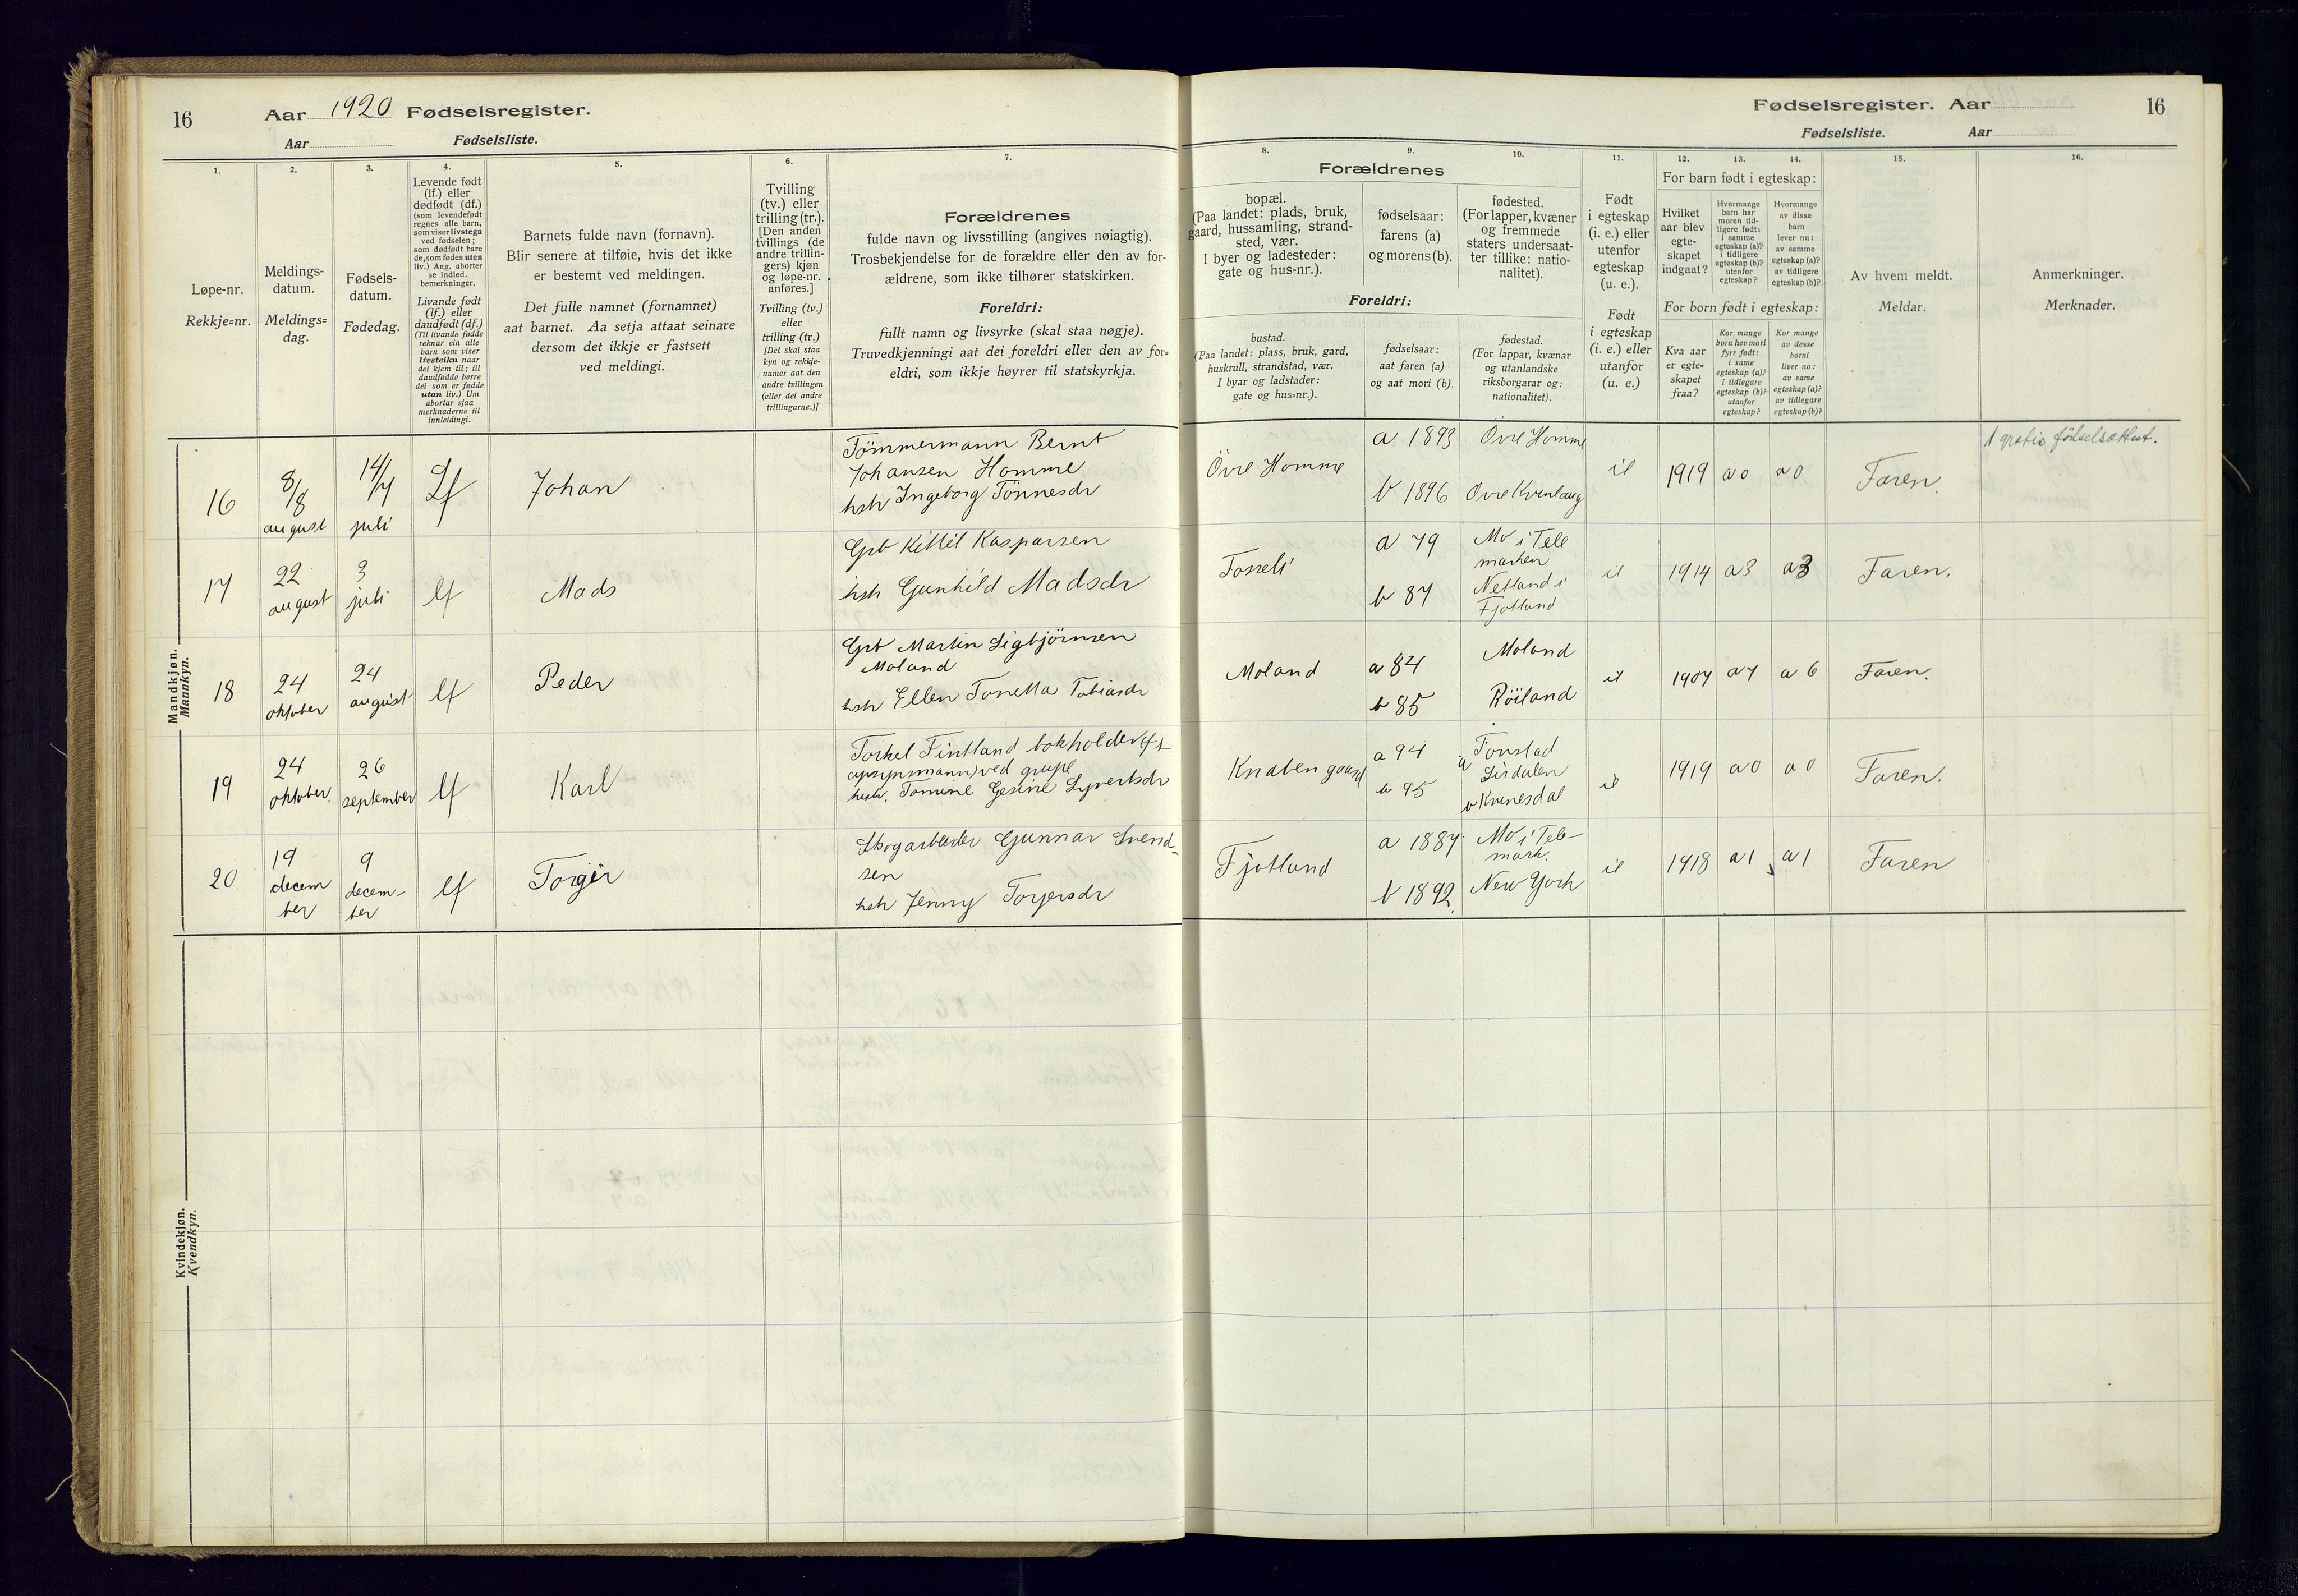 16
Aar 1920 Fødselsregister.
Aar
Fødselsliste.
Fødselsregister. Aar
16
Fødselsliste.
Aar
1.
Løpe-nr.
Rekkje=nr.
2.
Meldings-
datum.
Meldings=
dag.
3.
Fødsels-
datum.
Fødedag.
4.
Levende født
(lf.) eller
dødfødt (df.)
(som levendefødt
regnes alle barn,
som viser livstegn
ved fødselen;
som dødfødt bare
de, som fødes uten
liv.) Ang. aborter
se indled.
bemerkninger.
Livande født
(lf.) eller
daudfødt (df.)
(Til livande fødde
reknar ein alle
barn som viser
livsteikn naar
dei kjem til; til
daudfødde berre
dei som er fødde
utan liv.) Um
abortar sjaa
merknaderne til
innleidingi.
5.
Barnets fulde navn (fornavn).
Blir senere at tilføie, hvis det ikke
er bestemt ved meldingen.
Det fulle namnet (fornamnet)
aat barnet. Aa setja attaat seinare
dersom det ikkje er fastsett
ved meldingi.
6.
Tvilling
(tv.) eller
trilling (tr.).
[Den anden
tvillings (de
andre trillin-
gers) kjøn
og løpe-nr.
anføres.]
Tvilling (tv.)
eller
trilling (tr.)
[Det skal staa
kyn og rekkje-
numer aat den
andre tvillingen
(eller dei andre
trillingarne.)]
7.
Forældrenes
fulde navn og livsstilling (angives nøiagtig).
Trosbekjendelse for de forældre eller den av for-
ældrene, som ikke tilhører statskirken.
Foreldri:
fullt namn og livsyrke (skal staa nøgje).
Truvedkjenningi aat dei foreldri eller den av for=
eldri, som ikkje høyrer til statskyrkja.
Forældrenes
8.
bopæl.
(Paa landet: plads, bruk,
gaard, hussamling, strand-
sted, vær.
I byer og ladesteder:
gate og hus-nr.).
9.
fødselsaar:
farens (a)
og morens (b).
10.
fødested.
(For lapper, kvæner
og fremmede
staters undersaat-
ter tillike: natio-
nalitet).
Foreldri:
bustad.
(Paa landet: plass, bruk, gard,
huskrull, strandstad, vær.
I byar og ladstader:
gate og hus=nr.).
fødselsaar:
aat faren (a)
og aat mori (b).
fødestad.
(For lappar, kvænar
og utanlandske
riksborgarar og:
nationalitet).
11.
Født
i egteskap
(i. e.) eller
utenfor
egteskap
(u. e.).
Født
i egteskap
(i. e.) eller
utanfor
(u. e.)
12.
13.
14.
For barn født i egteskap:
Hvilket
aar blev
egte-
skapet
indgaat?
Hvormange
barn har
moren tid-
ligere født:
i samme
egteskap (a)?
i tidligere
egteskap (b)?
utenfor
egteskap?
Hvormange
av disse
barn
lever nu:
av samme
egteskap (a)?
av tidligere
egteskap (b)?
For born født i egteskap:
Kva aar
er egte=
skapet
fraa?
Kor mange
born hev mori
fyrr født:
i same
egteskap (a)?
i tidlegare
egteskap (b)?
utanfor
egteskap?
Kor mange
av desse
borni
liver no:
av same
egteskap (a)?
av tidlegare
egteskap (b)?
15.
Av hvem meldt.
Meldar.
16.
Anmerkninger.
Merknader.
Mandkjøn.
Mannkyn.
16
8/8
august
14/7
juli
Lf
Johan
Tömmermann Bernt
Johansen Homme
hstr Ingeborg Tönnesdr
Övre Homme
a 1893
b 1896
Övre Homme
Övre Kvinlaug
1919 a 0 a 0
Faren.
1 gratis födselsattest.
17
22
august
3
juli
lf
Mads
Gbr Kittil Kasparsen
hstr Gunhild Madsdr
Fosseli
a 79
b 87
Mo i Tele
marken
Netland i
Fjotland
1914 a 3 a 3
Faren.
18
24
oktober
24
august
lf
Peder
Gbr Martin Sigbjörnsen
Moland
hstr Ellen Tonetta Tobiasdr
Moland
a 84
b 85
Moland
Röiland
1907 a 7 a 6
Faren.
19
24
oktober.
26
september
lf
Karl
Torkel Fintland bokholder
ved
hstr. Tomine Gesine Syvertsdr
Knaben gaard
a 94
b 95
a Tonstad
Sirdalen
b Kvinesdal
1919 a 0 a 0
Faren.
20
19
decem
ber
9
decem-
ber
lf
Torgeir
Skogarbeider Gunnar Svend-
sen
hstr Jenny Torjersdr
Fjotland
a 1887.
b 1892.
Mo i Tele-
mark.
New York
1918 a 1 a 1
Faren
Kvindekjøn.
Kvendkyn.